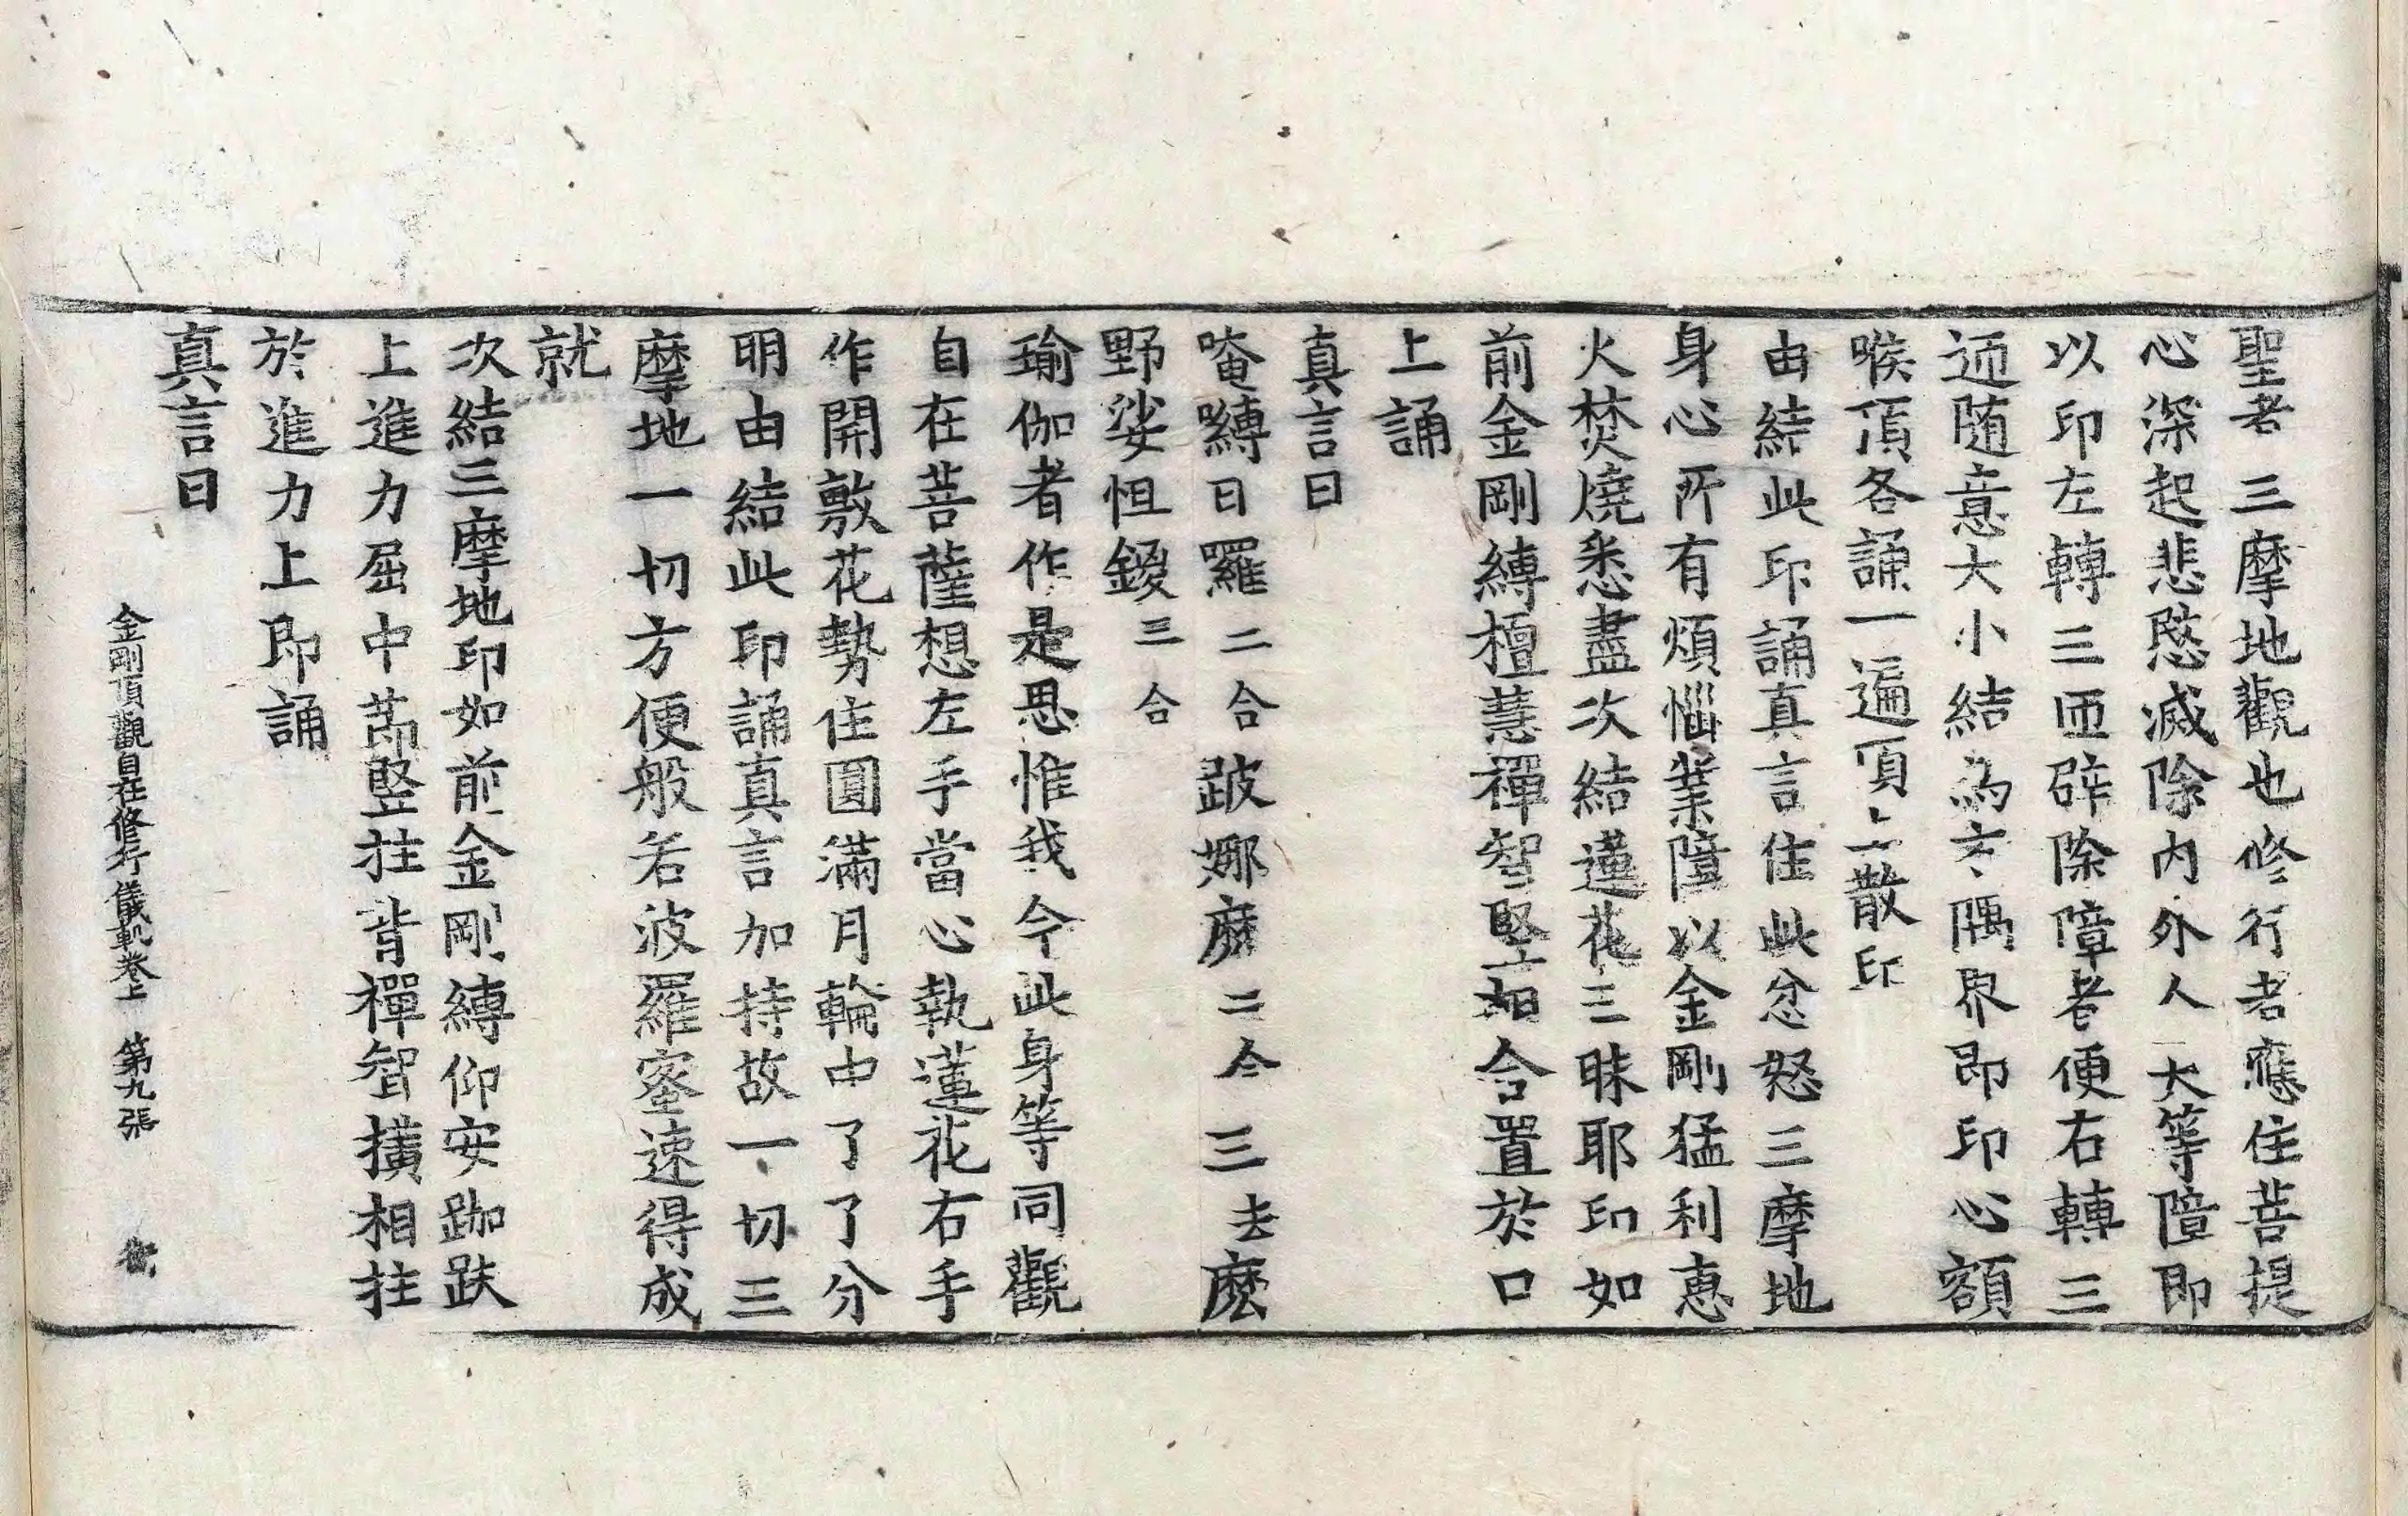 聖者三摩地觀也修行者應住菩提
心深起悲愍滅除内外人大等障即
以印左轉三匝辟除障者便右轉三
迊随意大小結為方隅界即印心額
喉頂各誦一遍頂上散印
由結此印誦真言住此忿怒三摩地
身心所有煩惱業障以金剛猛利恵
火焚燒悉盡次結蓮花三昧耶印如
前金剛縛檀慧禪智竪如合置於口
上誦
真言曰
唵嚩日羅二合跛娜麽二合三去麽
野娑怛鑁三合
瑜伽者作是思惟我今此身等同觀
自在菩薩想左手當心執蓮花右手
作開敷花勢住圓滿月輪中了了分
明由結此印誦真言加持故一切三
摩地一切方便般若波羅蜜速得成
就
次結三摩地印如前金剛縛仰安跏趺
上進力屈中莭竪拄背禪智撗相拄
於進力上即誦
真言曰
金剛頂觀自在修行儀軌卷上 第九張